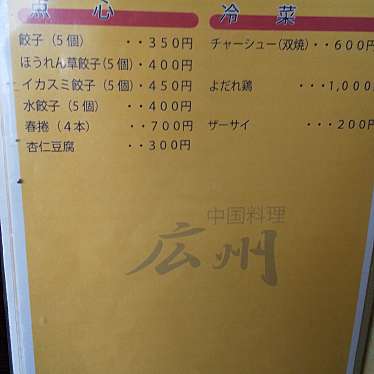 点心
餃子（5個）・・350円
ほうれん草餃子(5個)・400円
イカスミ餃子(5個)・450円
水餃子（5個）・・400円
春捲（4本）・・700円
杏仁豆腐・・300円
冷菜
チャーシュー(双焼)・・600円
よだれ鶏・・・1,000
ザーサイ・・・200円
中国料理
広州